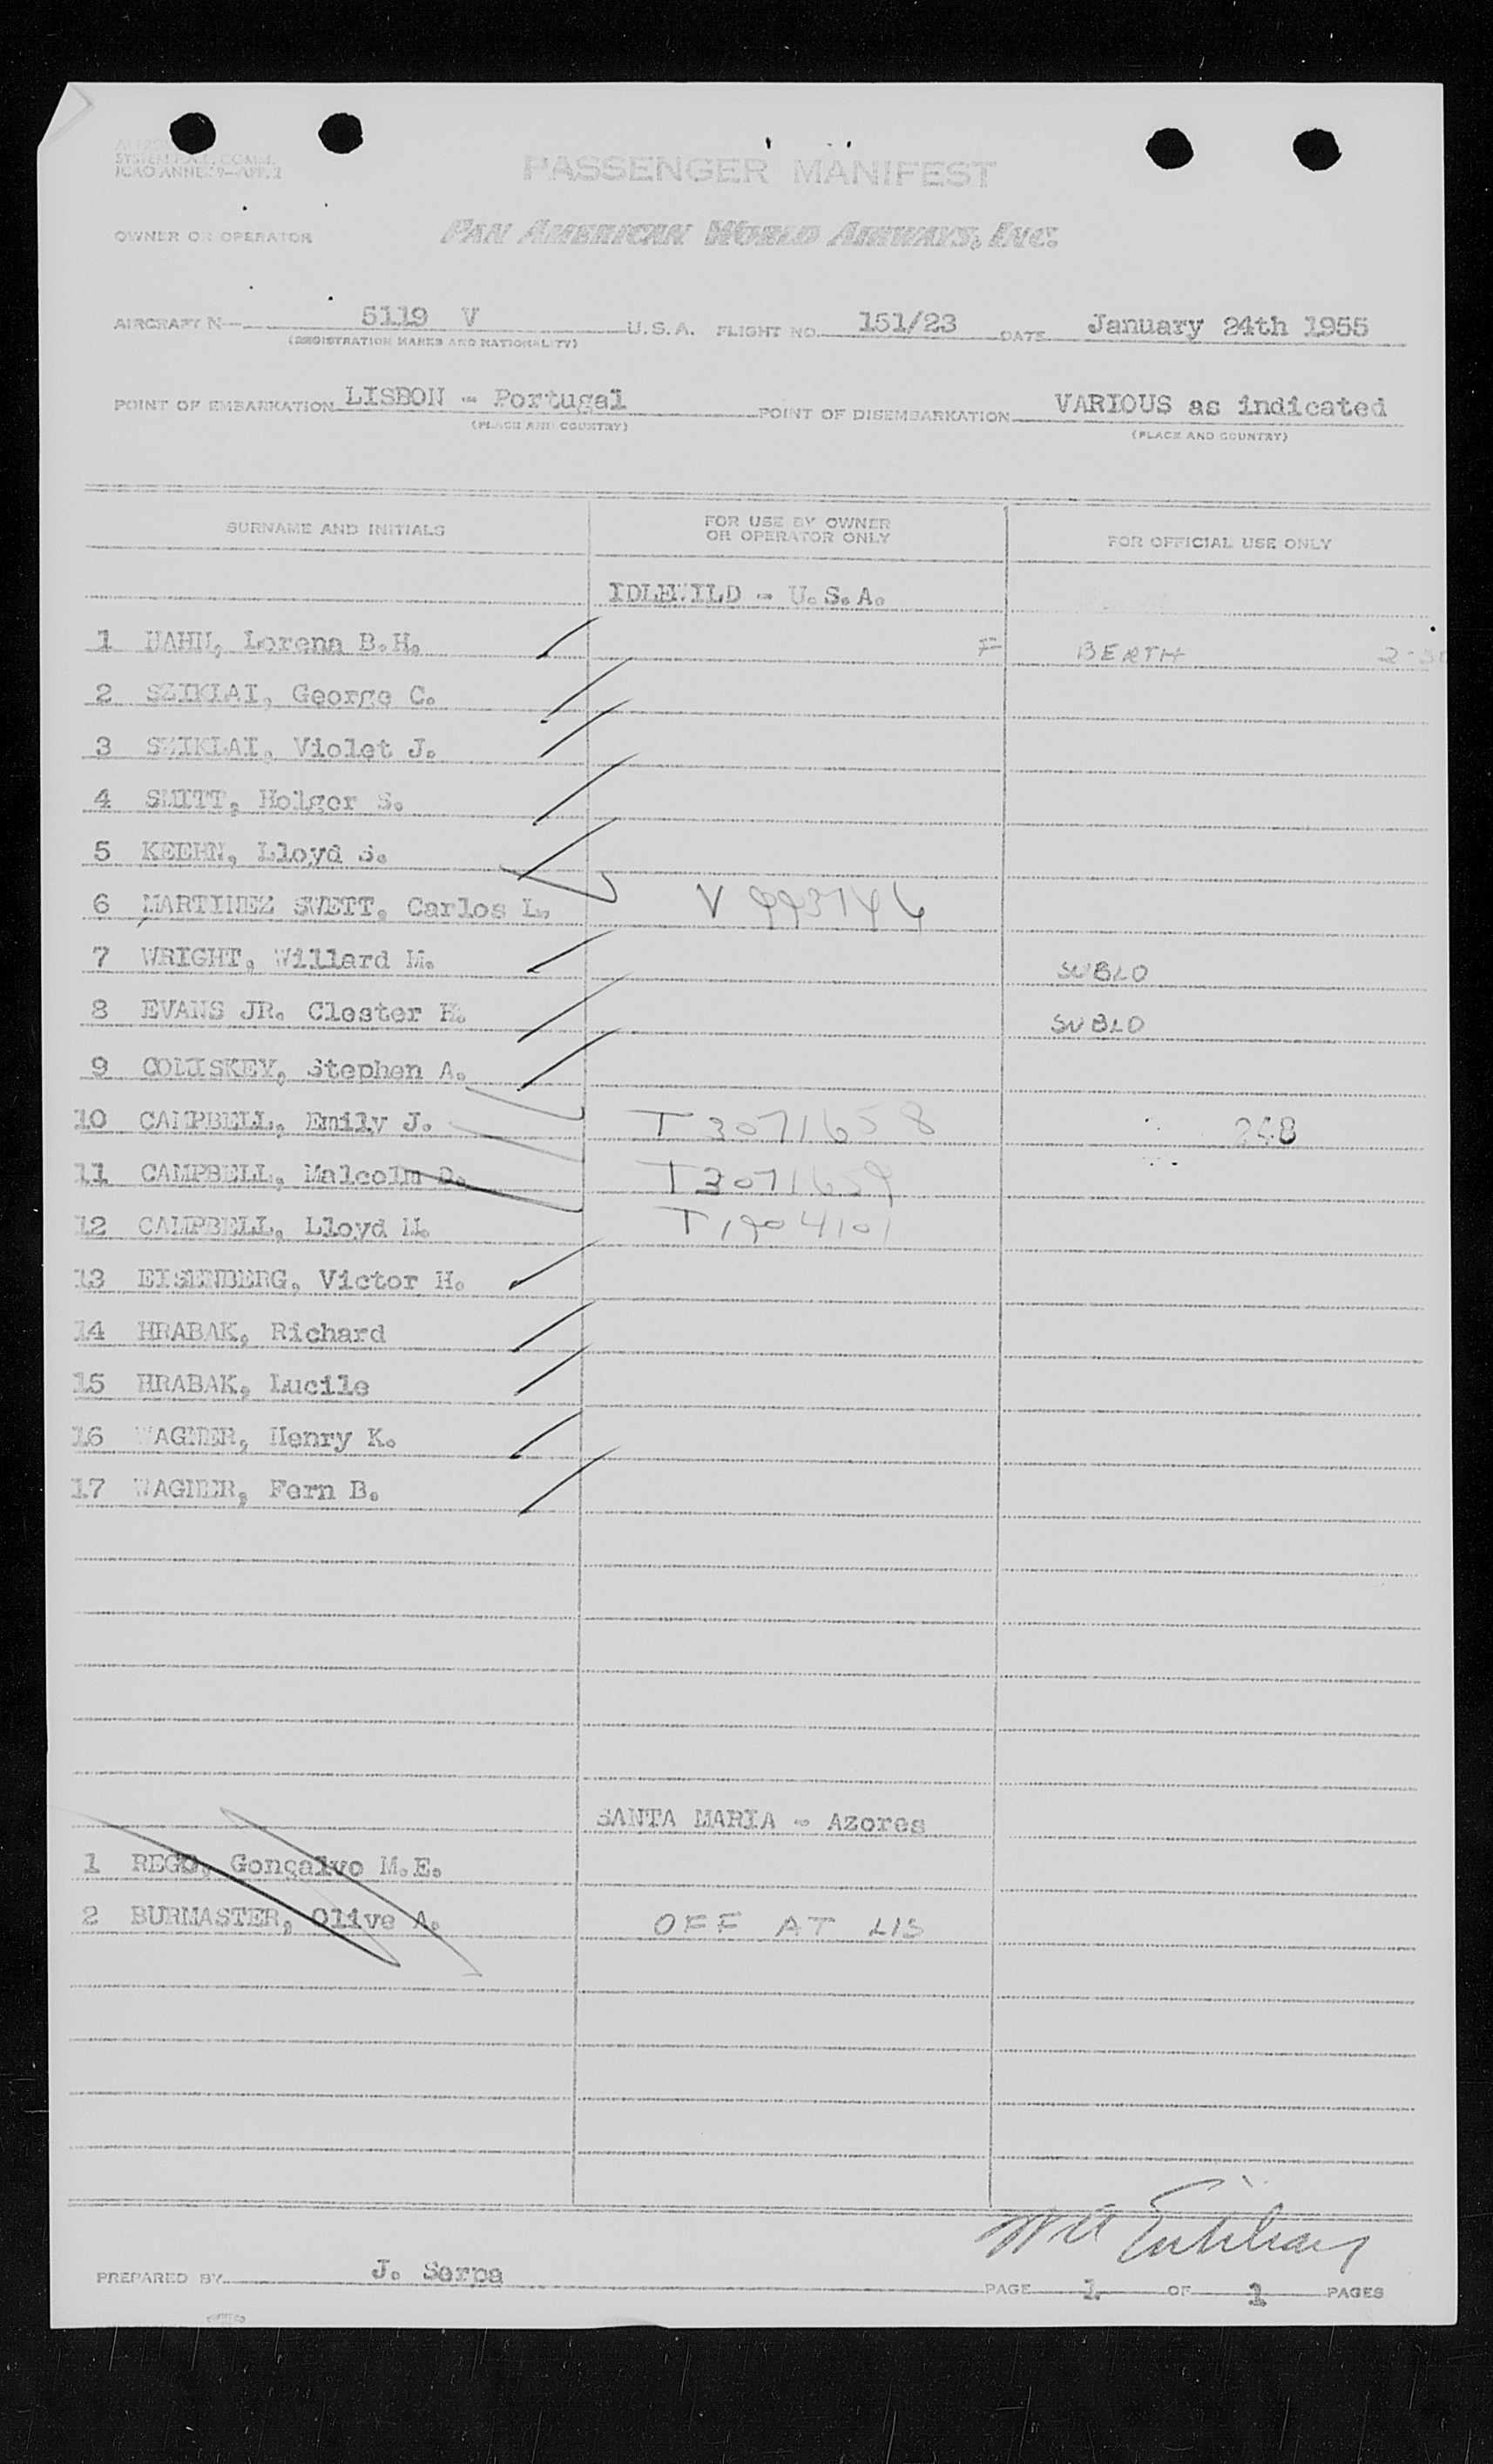 SYSTEM
ICAO ANNEX 9—APP. 2
PASSENGER MANIFEST
OWNER OR OPERATOR PAN AMERICAN WORLD AIRWAYS, INC.
AIRCRAFT N— 5119 V U.S.A. FLIGHT NO. 151/23 DATE January 24th 1955
(REGISTRATION MARKS AND NATIONALITY)
POINT OF EMBARKATION LISBON - Portugal POINT OF DISEMBARKATION VARIOUS as indicated
(PLACE AND COUNTRY) (PLACE AND COUNTRY)
SURNAME AND INITIALS FOR USE BY OWNER OR OPERATOR ONLY FOR OFFICIAL USE ONLY
IDLEWILD - U.S.A.
1 Lorena B.H. F BERTH
2 SZIKLAI, George C.
3 SZIKLAI, Violet J.
4 SMITT, Holger S.
5 KEEHN, Lloyd S.
6 MARTINEZ SWETT, Carlos L. V 993746
7 WRIGHT, Willard M. SUBLO
8 EVANS JR. Clester H. SUBLO
9 COMISKEY, Stephen A.
10 CAMPBELL, Emily J. T 3071658 248
11 CAMPBELL, Malcolm D. T3071659
12 CAMPBELL, Lloyd M. T1904101
13 EISENBERG, Victor H.
14 HRABAK, Richard
15 HRABAK, Lucile
16 WAGNER, Henry K.
17 WAGNER, Fern B.
SANTA MARIA - Azores
1 REGO, Gonçalvo M.E.
2 BURMASTER, Olive A. OFF AT LIS
PREPARED BY J. Serpa PAGE 1 OF 1 PAGES